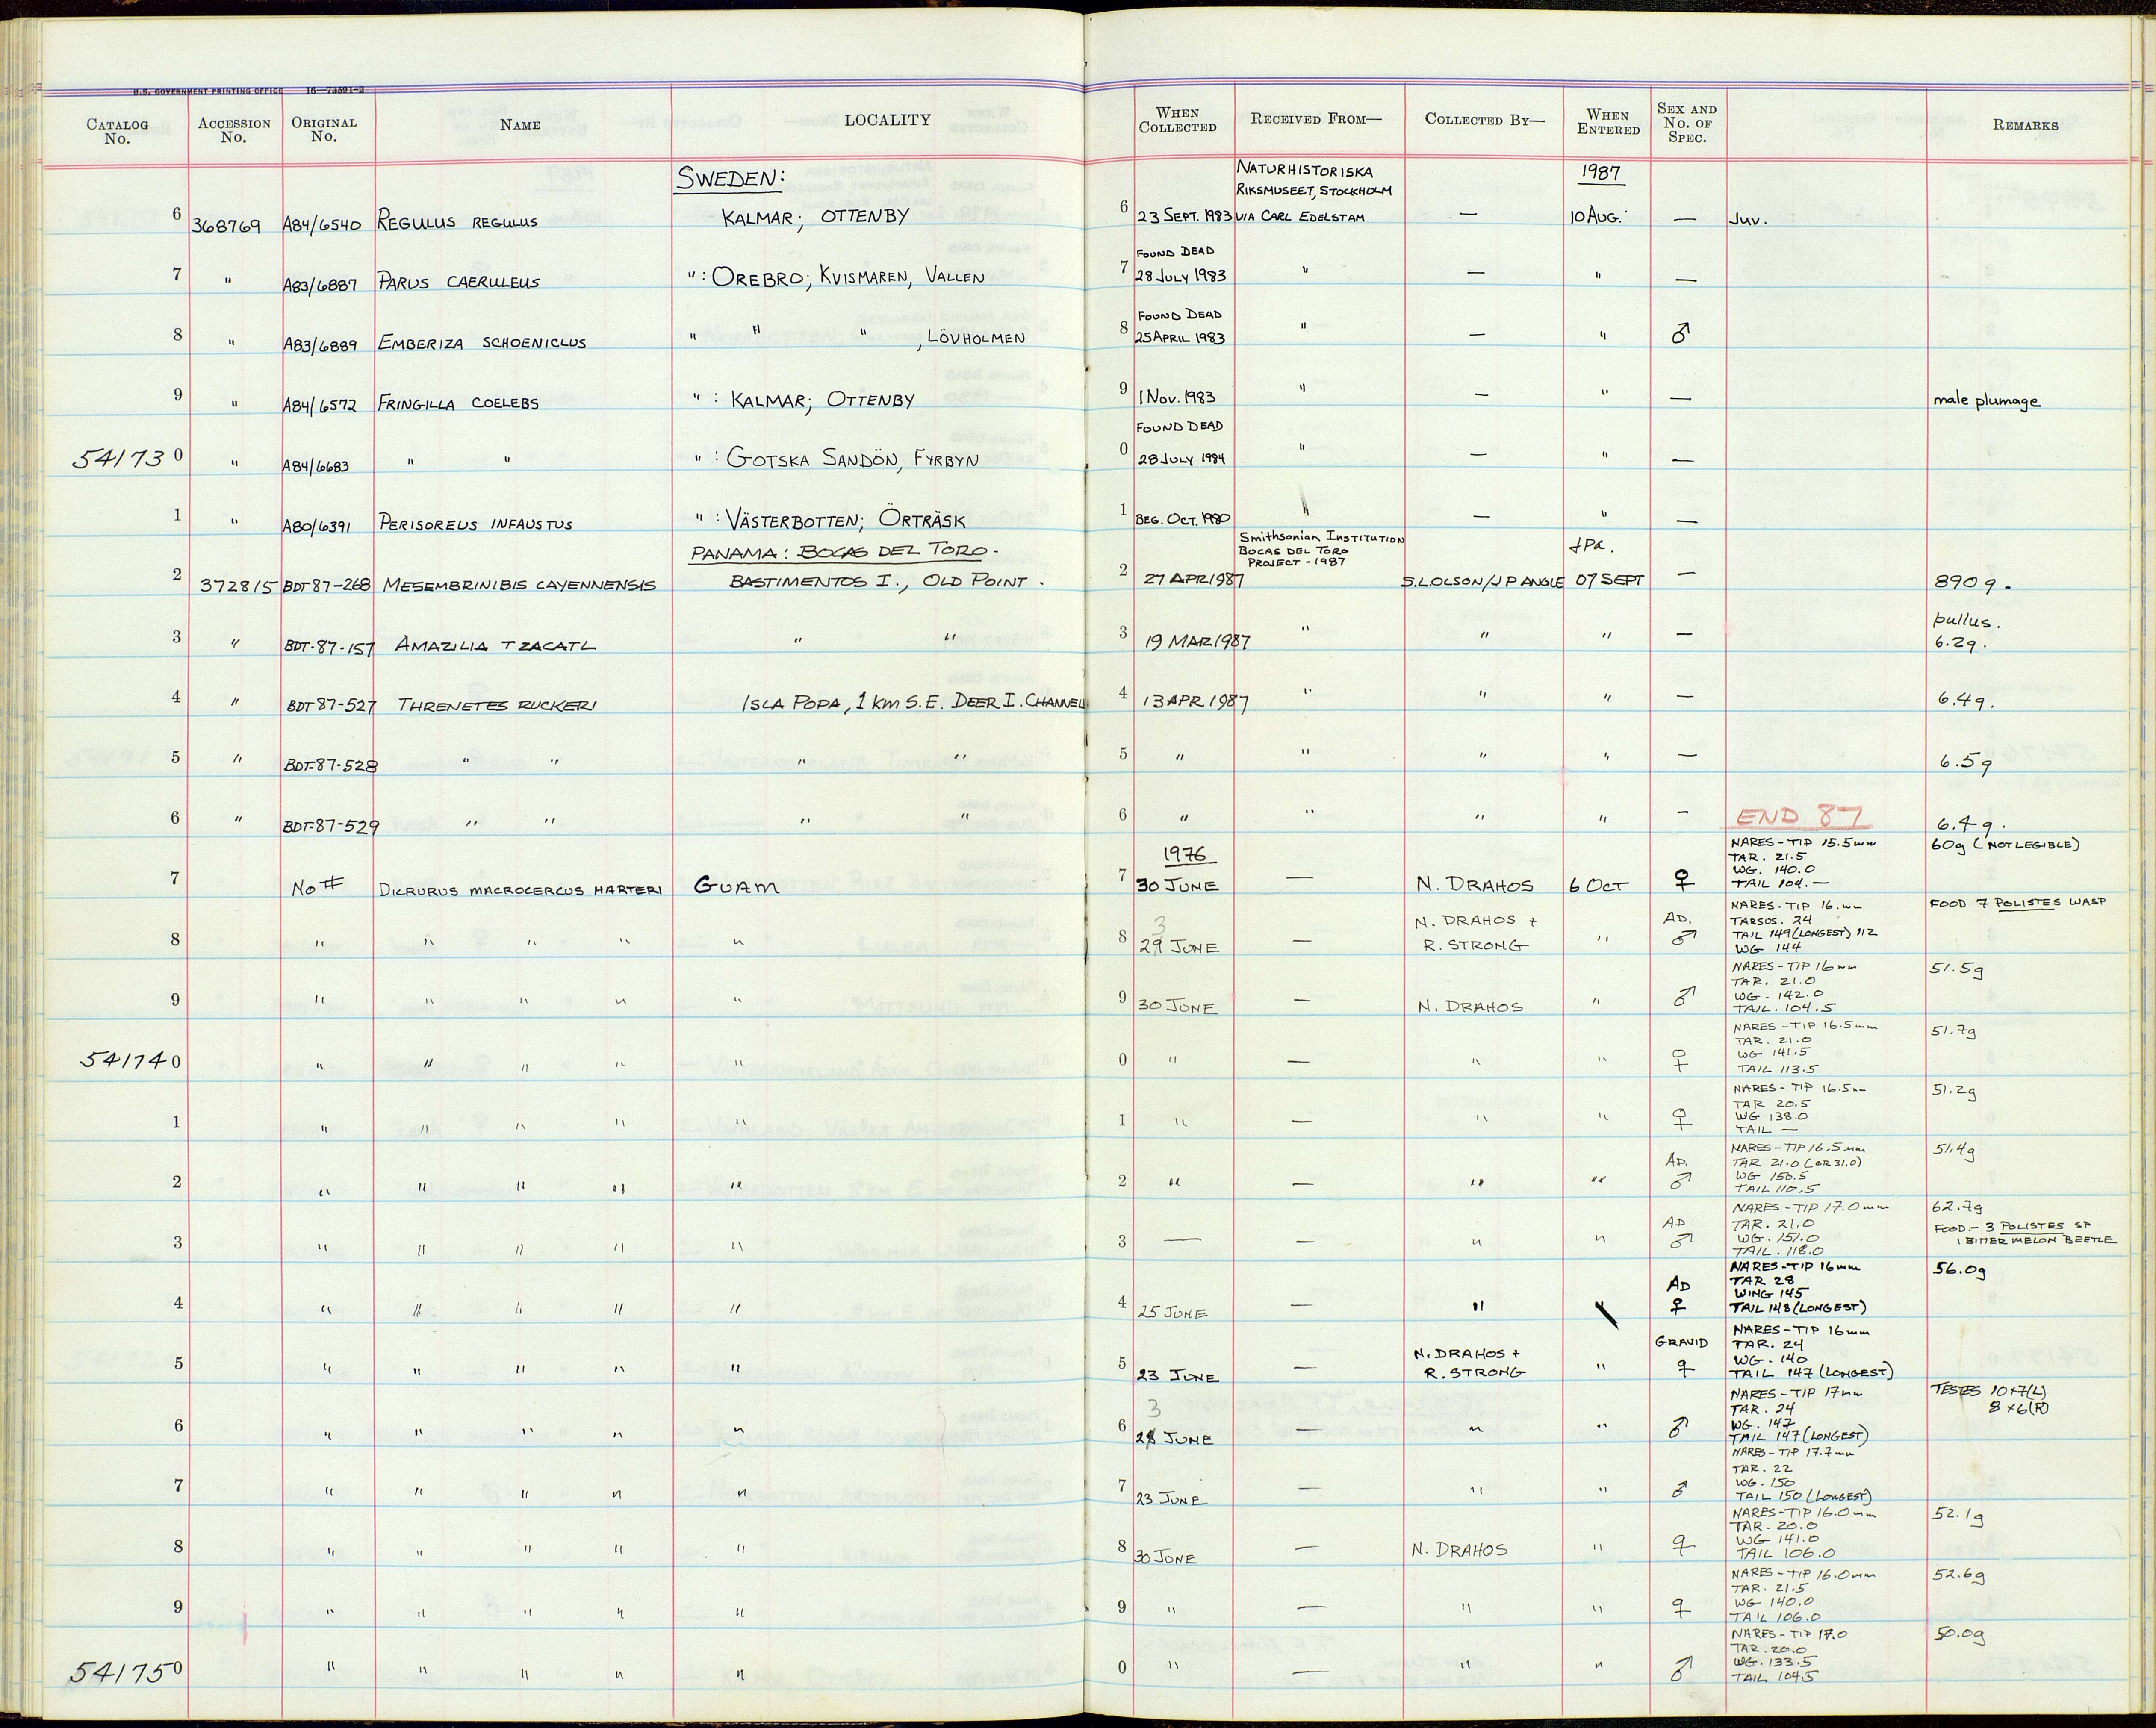 U.S. GOVERNMENT PRINTING OFFICE 16—73591-2
CATALOG No. ACCESSION No. ORIGINAL No. NAME LOCALITY WHEN COLLECTED RECEIVED FROM— COLLECTED BY— WHEN ENTERED SEX AND No. OF SPEC. REMARKS
SWEDEN: NATURHISTORISKA RIKSMUSEET, STOCKHOLM 1987
6 368769 A84/6540 REGULUS REGULUS KALMAR; OTTENBY 6 23 SEPT. 1983 VIA CARL EDELSTAM — 10 AUG. — JUV.
7 " A83/6887 PARUS CAERULEUS ": OREBRO; KVISMAREN, VALLEN 7 FOUND DEAD 28 JULY 1983 " — " —
8 " A83/6889 EMBERIZA SCHOENICLUS " " " , LÖVHOLMEN 8 FOUND DEAD 25 APRIL 1983 " — " ♂
9 " A84/6572 FRINGILLA COELEBS ": KALMAR; OTTENBY 9 1 NOV. 1983 " — " — male plumage
541730 " A84/6683 " " ": GOTSKA SANDÖN, FYRBYN 0 FOUND DEAD 28 JULY 1984 " — " —
1 " A80/6391 PERISOREUS INFAUSTUS ": VÄSTERBOTTEN; ÖRTRÄSK 1 BEG. OCT. 1980 " — " —
PANAMA: BOCAS DEL TORO. Smithsonian INSTITUTION BOCAS DEL TORO PROJECT - 1987 JPA.
2 372815 BDT 87-268 MESEMBRINIBIS CAYENNENSIS BASTIMENTOS I., OLD POINT. 2 27 APR 1987 S.L.OLSON/J P ANGLE 07 SEPT — 890 g.
3 " BDT-87-157 AMAZILIA TZACATL " " 3 19 MAR 1987 " " " — pullus. 6.2g.
4 " BDT 87-527 THRENETES RUCKERI ISLA POPA, 1 km S.E. DEER I. CHANNEL 4 13 APR 1987 " " " — 6.4g.
5 " BDT-87-528 " " " " 5 " " " " — 6.5g
6 " BDT-87-529 " " " " 6 " " " " — END 87 6.4g.
1976
7 NO # DICRURUS MACROCERCUS HARTERI GUAM 7 30 JUNE — N. DRAHOS 6 OCT ♀ NARES-TIP 15.5mm 60g (NOT LEGIBLE)
TAR. 21.5
WG. 140.0
TAIL 104.—
8 " " " " " 8 3 29 JUNE — N. DRAHOS + R. STRONG " AD. ♂ NARES-TIP 16.mm FOOD 7 POLISTES WASP
TARSUS. 24
TAIL 149 (LONGEST) 112
WG 144
9 " " " " " 9 30 JUNE — N. DRAHOS " ♂ NARES-TIP 16mm 51.5g
TAR. 21.0
WG. 142.0
TAIL. 104.5
541740 " " " " " 0 " — " " ♀ NARES-TIP 16.5mm 51.7g
TAR. 21.0
WG 141.5
TAIL 113.5
1 " " " " " 1 " — " " ♀ NARES-TIP 16.5mm 51.2g
TAR 20.5
WG 138.0
TAIL —
2 " " " " " 2 " — " " AD. ♂ NARES-TIP 16.5mm 51.4g
TAR 21.0 (OR 31.0)
WG 150.5
TAIL 110.5
3 " " " " " 3 — — " " AD ♂ NARES-TIP 17.0mm 62.7g
TAR. 21.0 FOOD.- 3 POLISTES SP
WG. 151.0 1 BITTER MELON BEETLE
TAIL. 118.0
4 " " " " " 4 25 JUNE — " " AD ♀ NARES-TIP 16mm 56.0g
TAR 28
WING 145
TAIL 148 (LONGEST)
5 " " " " " 5 23 JUNE — N. DRAHOS + R. STRONG " GRAVID ♀ NARES-TIP 16mm
TAR. 24
WG. 140
TAIL 147 (LONGEST)
6 " " " " " 6 3 28 JUNE — " " ♂ NARES-TIP 17mm TESTES 10×7(L)
TAR. 24 8×6(R)
WG. 147
TAIL 147 (LONGEST)
7 " " " " " 7 23 JUNE — " " ♂ NARES-TIP 17.7mm
TAR. 22
WG. 150
TAIL 150 (LONGEST)
8 " " " " " 8 30 JUNE — N. DRAHOS " ♀ NARES-TIP 16.0mm 52.1g
TAR. 20.0
WG 141.0
TAIL 106.0
9 " " " " " 9 " — " " ♀ NARES-TIP 16.0mm 52.6g
TAR. 21.5
WG 140.0
TAIL 106.0
541750 " " " " " 0 " — " " ♂ NARES-TIP 17.0 50.0g
TAR. 20.0
WG. 133.5
TAIL 104.5